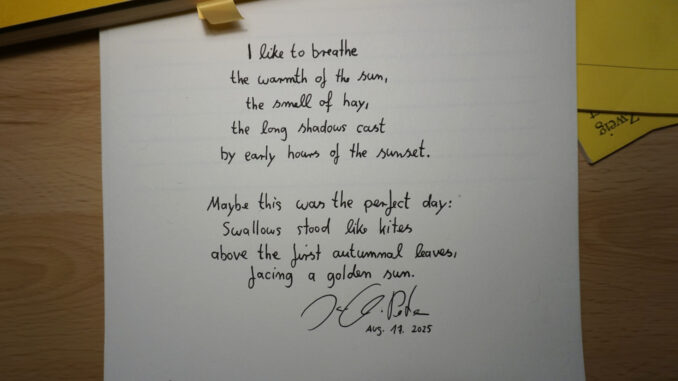 I like to breathe
the warmth of the sun,
the smell of hay,
the long shadows cast
by early hours of the sunset.
Maybe this was the perfect day:
Swallows stood like kites
above the first autumnal leaves,
facing a golden sun.
Aug. 17. 2025
Zweig